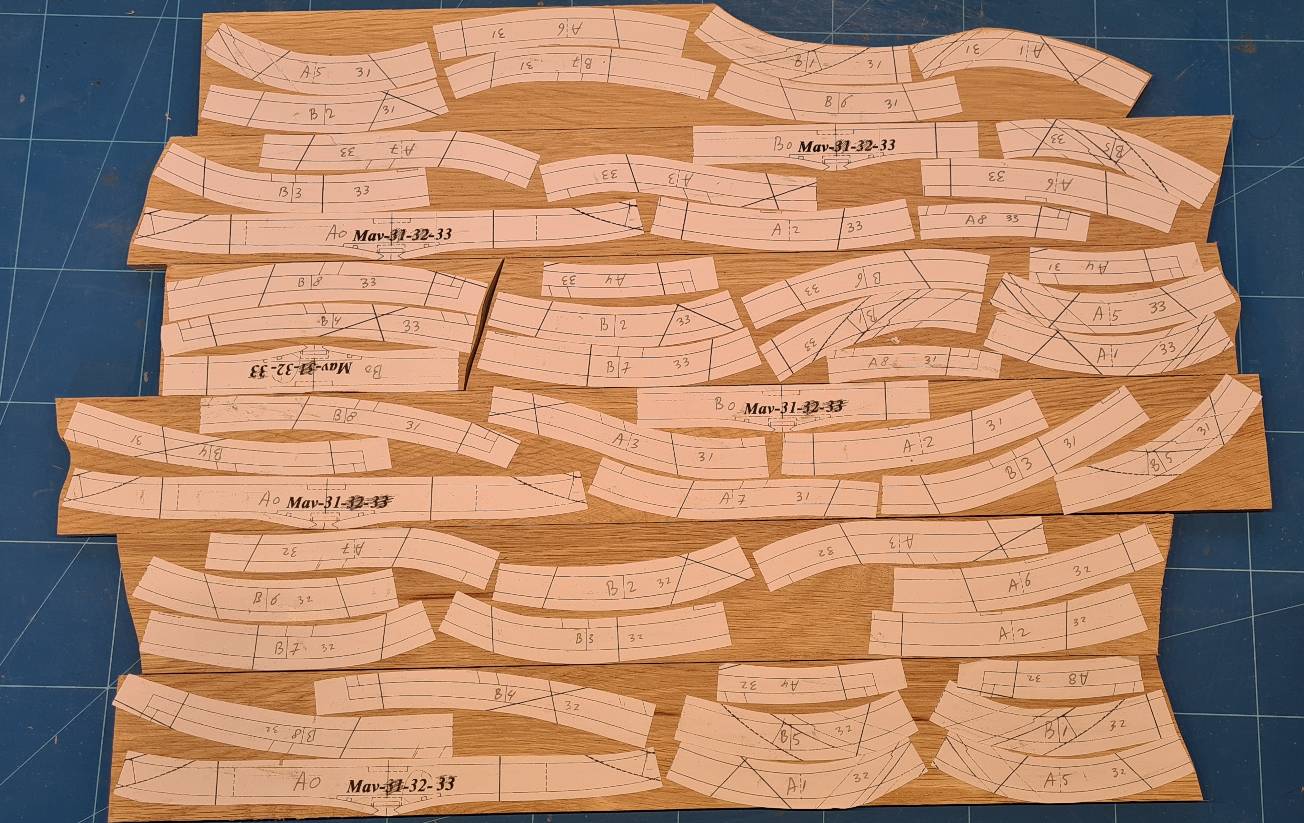 A6 31
A5 31
B7 31
B1 31
A1 31
B2 31
B6 31
A7 33
B0 Mav-31-32-33
B5 33
B3 33
A3 33
A6 33
A0 Mav-31-32-33
A2 33
A8 33
B8 33
A4 33
B6 33
A4 31
B4 33
B2 33
B1 33
A5 33
B0 Mav-31-32-33
B7 33
A8 31
A1 33
B8 31
B0 Mav-31-32-33
B4 31
A3 31
A2 31
B3 31
B5 31
A0 Mav-31-32-33
A7 31
A7 32
B2 32
A3 32
B6 32
A6 32
B7 32
B3 32
A2 32
B4 32
A4 32
A8 32
B8 32
B5 32
B1 32
A0 Mav-31-32-33
A1 32
A5 32